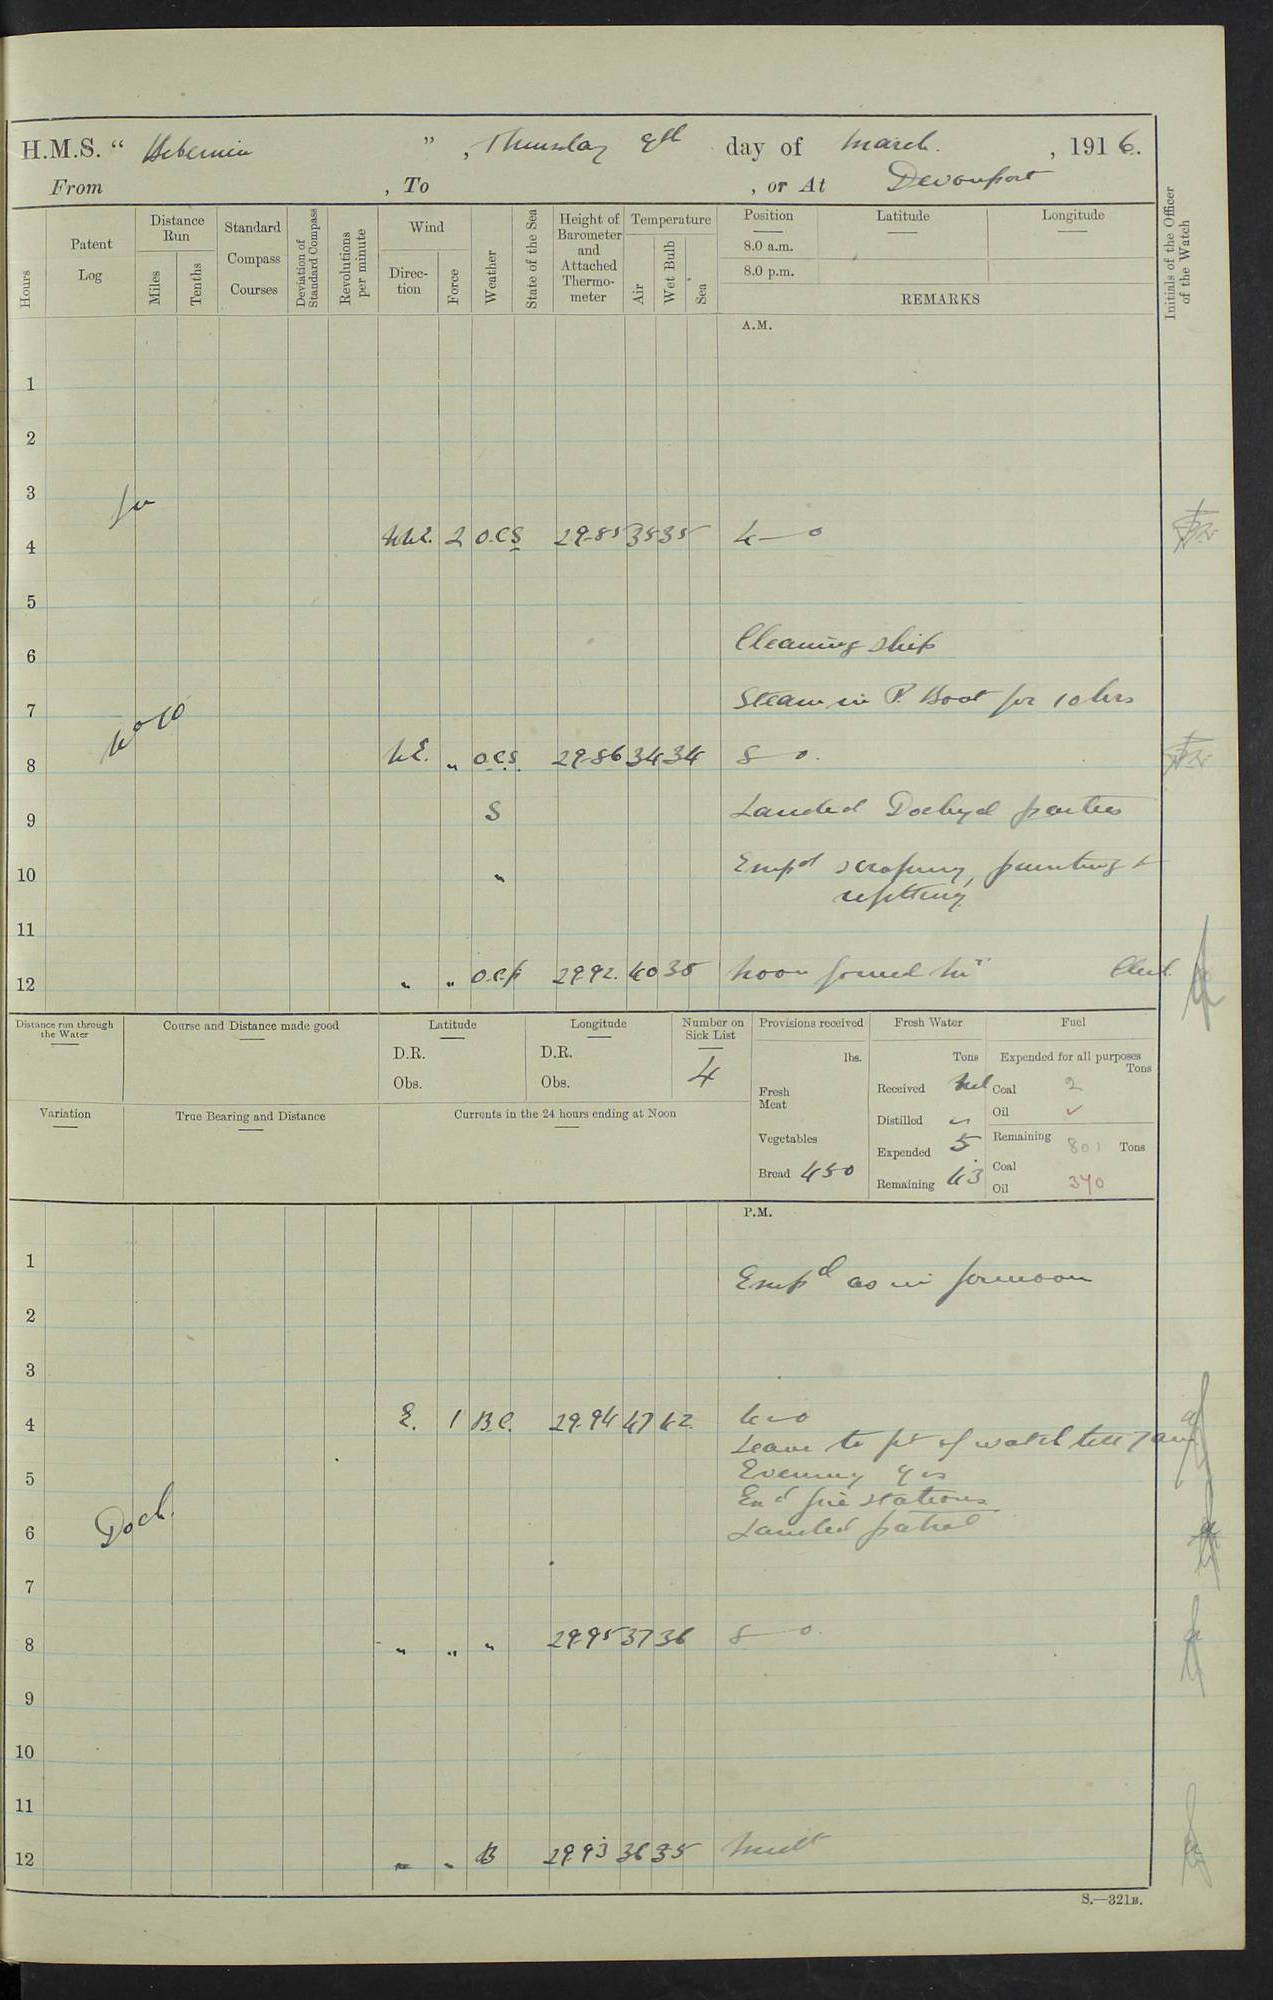 H.M.S. " Hibernia ", Thursday 9th day of March, 1916.
From , To , or At Devonport
Hours
Patent Log
Distance Run
Miles
Tenths
Standard Compass Courses
Deviation of Standard Compass
Revolutions per minute
Wind
Direction
Force
Weather
State of the Sea
Height of Barometer and Attached Thermometer
Temperature
Air
Wet Bulb
Sea
Position Latitude Longitude
8.0 a.m.
8.0 p.m.
REMARKS
Initials of the Officer of the Watch
A.M.
1
2
3
In
4 NNE. 2 O.C.S 29.85 35 35 4—0
5
Cleaning ship
6
Steam in P. Boat for 10 hrs
7
No 10
8 NE. " O.C.S. 29.86 34 34 8—0.
9 S Landed Dockyd parties
10 " Empd scraping, painting &
refitting
11
12 " " O.C.p 29.92. 40 38 Noon
Distance run through the Water
Course and Distance made good
Latitude
D.R.
Obs.
Longitude
D.R.
Obs.
Number on Sick List
4
Provisions received
lbs.
Fresh Meat
Vegetables
Bread 450
Fresh Water
Tons
Received Nil
Distilled "
Expended 5
Remaining 43
Fuel
Expended for all purposes
Tons
Coal 2
Oil ✓
Remaining 801 Tons
Coal
Oil 370
Variation
True Bearing and Distance
Currents in the 24 hours ending at Noon
P.M.
1
Empd as in forenoon
2
3
4 E. 1 B.C. 29.94 47 42 4—0
Leave to pt of watch till 7 am
5 Evening qrs
Exd fire stations
6 Landed patrol
Dock.
7
8 " " " 29.95 37 36 8—0.
9
10
11
12 " " B 29.93 36 35 Midt
S.—321B.